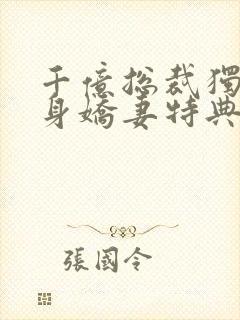 千億總裁獨
身嬌妻特典
張國令